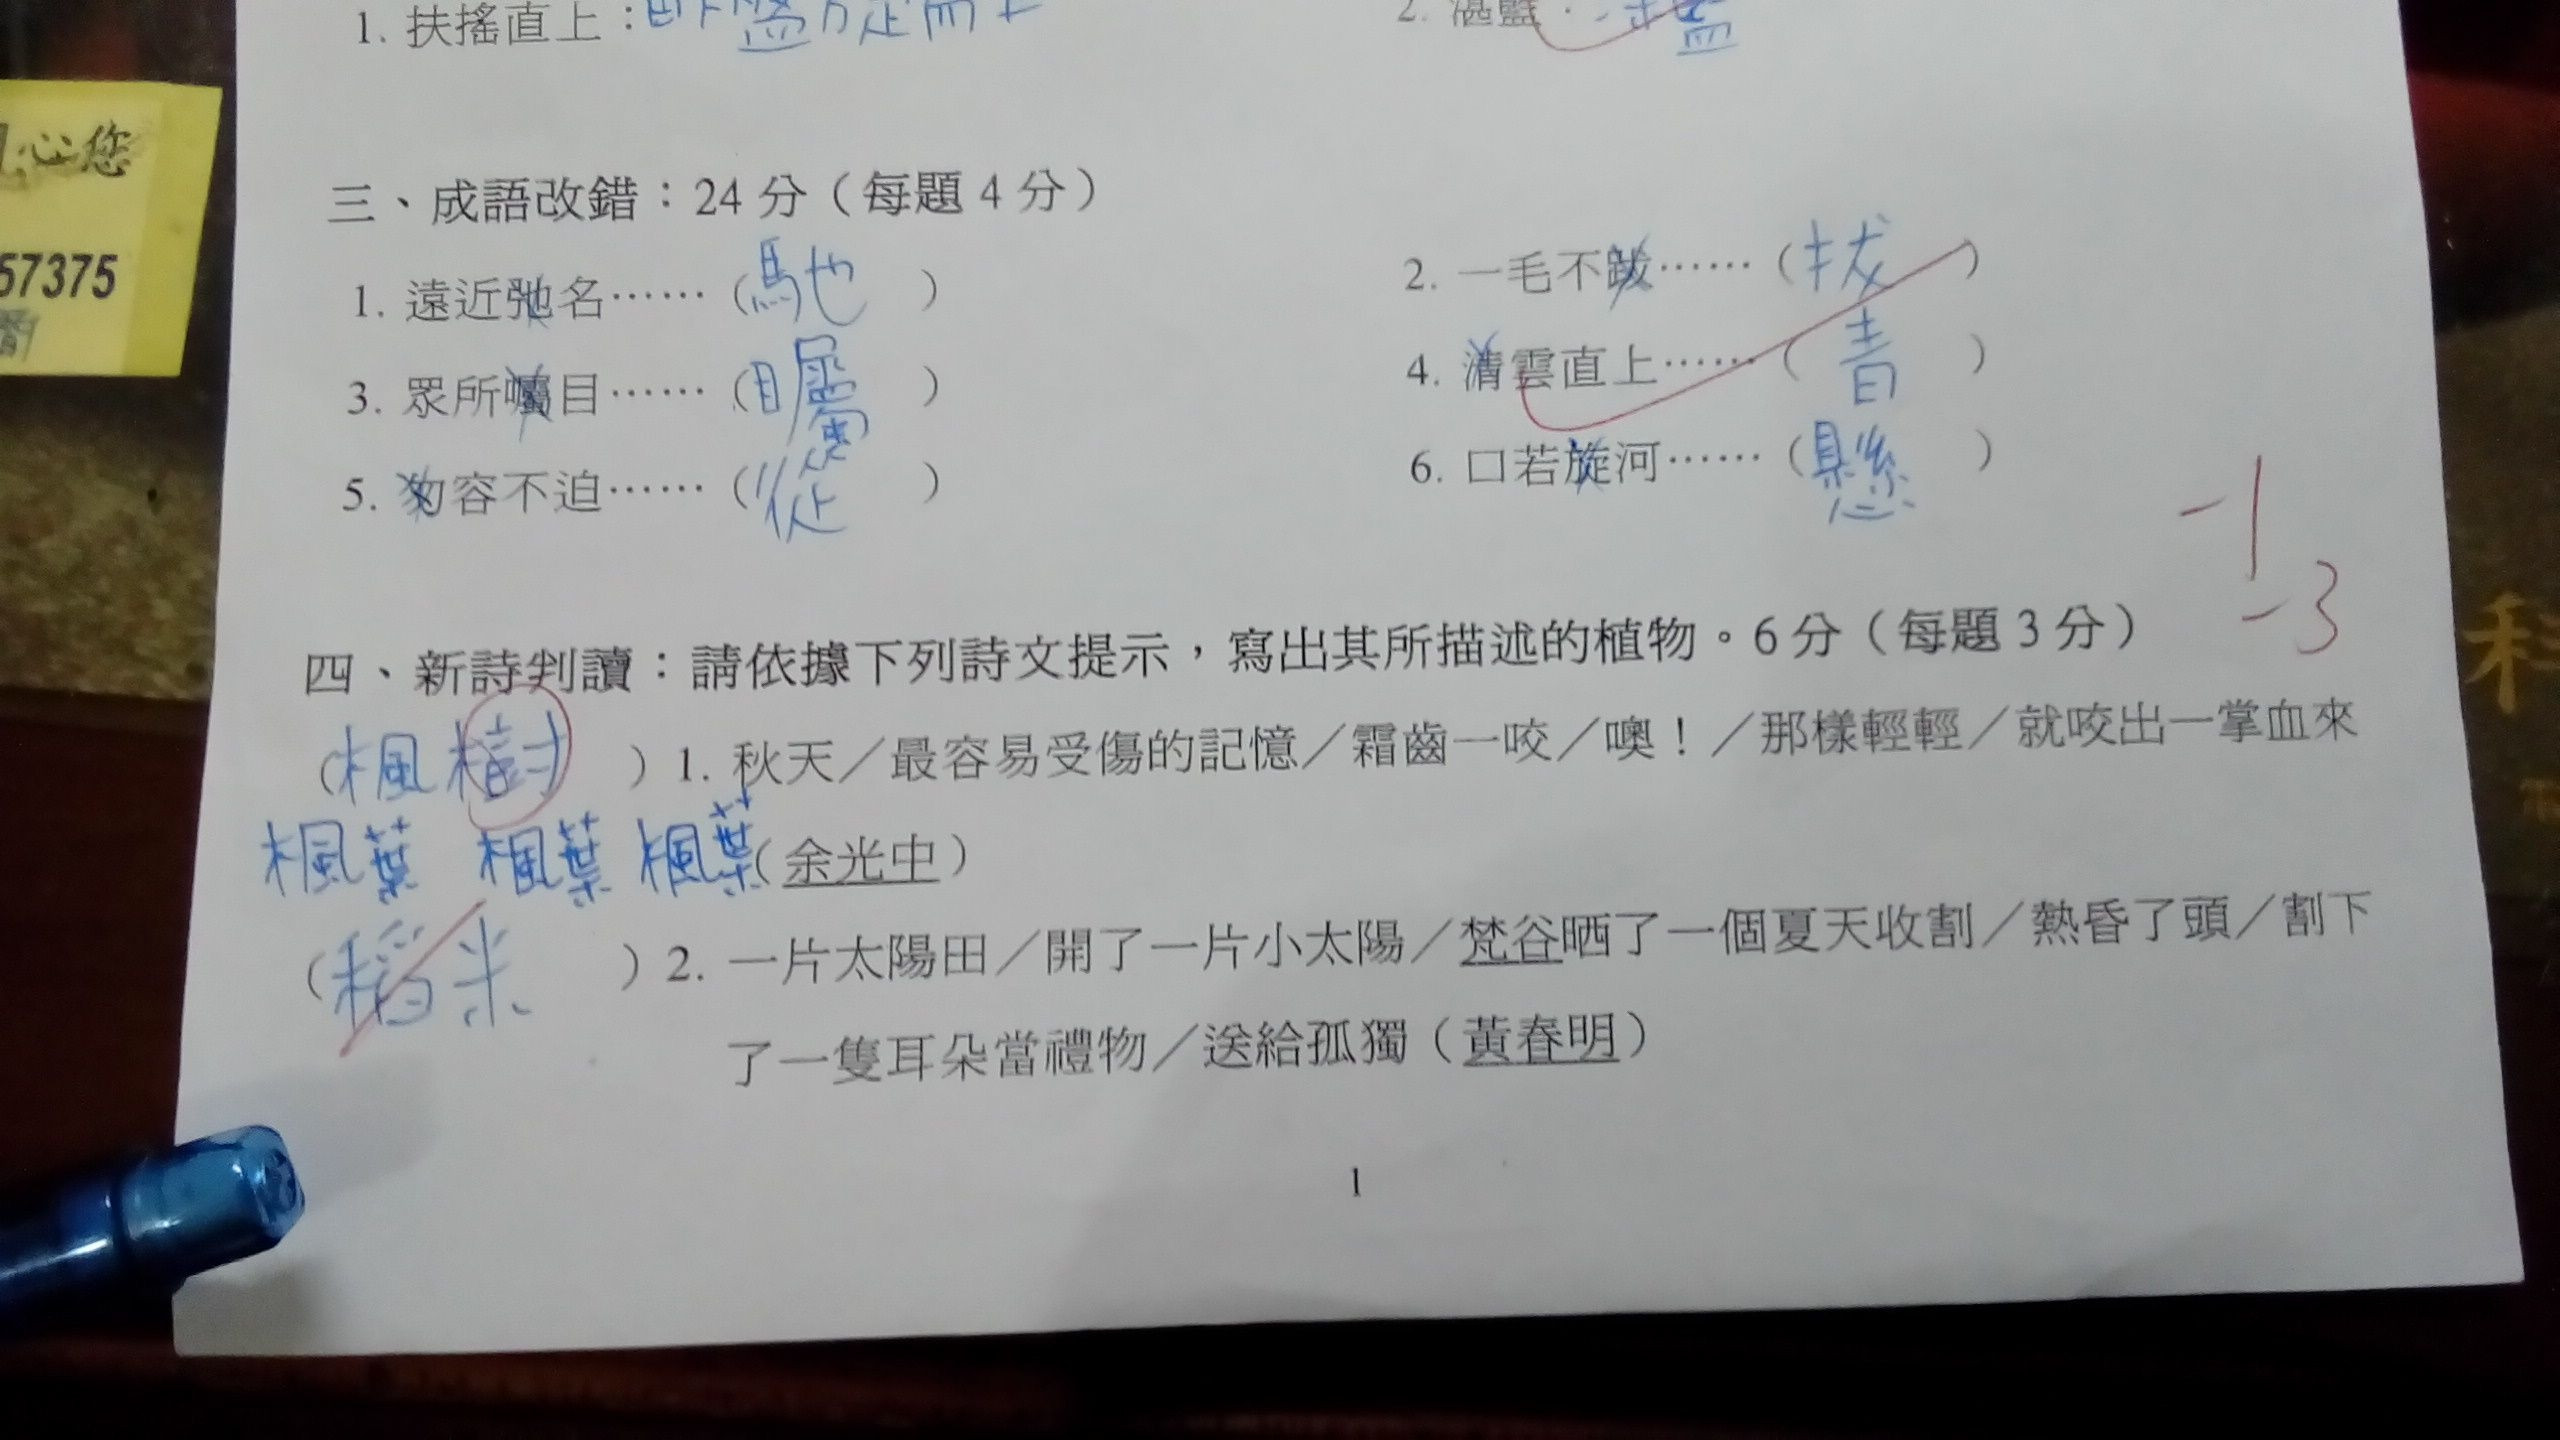 1. 扶搖直上：
2. 湛藍：
心您
57375
三、成語改錯：24分（每題4分）
1. 遠近弛名……（馳）
2. 一毛不跋……（拔）
3. 眾所囑目……（矚）
4. 清雲直上……（青）
5. 匆容不迫……（從）
6. 口若旋河……（懸）
-1
-3
四、新詩判讀：請依據下列詩文提示，寫出其所描述的植物。6分（每題3分）
（楓樹）1. 秋天／最容易受傷的記憶／霜齒一咬／噢！／那樣輕輕／就咬出一掌血來
楓葉 楓葉 楓葉（余光中）
（稻米）2. 一片太陽田／開了一片小太陽／梵谷晒了一個夏天收割／熱昏了頭／割下
了一隻耳朵當禮物／送給孤獨（黃春明）
1